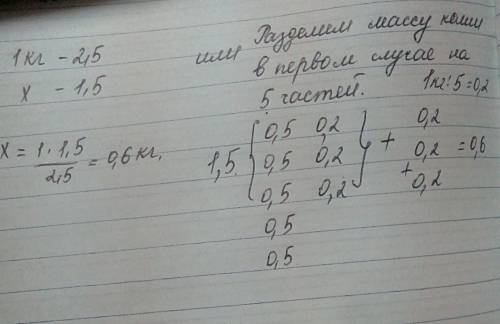 1 кг – 2,5
x – 1,5
x = 1 · 1,5 / 2,5 = 0,6 кг.
или
Разделим массу
в первом случае на
5 частей.
1кг : 5 = 0,2
1,5
0,5 0,2
0,5 0,2
0,5 0,2
0,5
0,5
+
0,2
0,2
+
0,2
= 0,6